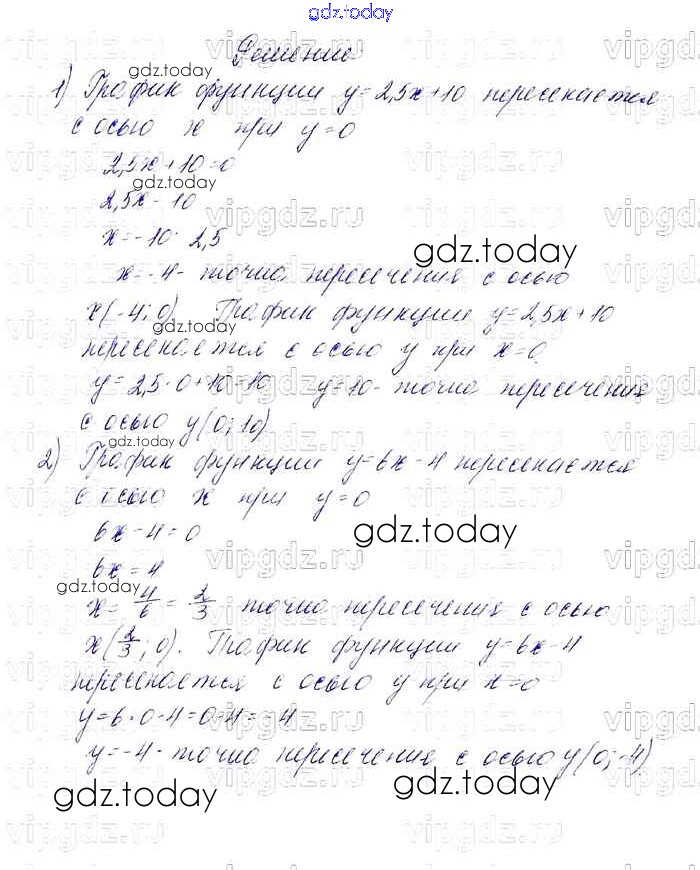 gdz.today
Решение
1) График функции y=2,5x+10 пересекается
с осью x при y=0
2,5x+10=0
2,5x=-10
x=-10:2,5
x=-4- точка пересечения с осью
x(-4;0). График функции y=2,5x+10
пересекается с осью y при x=0.
y=2,5·0+10=10 y=10- точка пересечения
с осью y(0;10)
2) График функции y=6x-4 пересекается
с осью x при y=0
6x-4=0
6x=4
x=4/6=2/3 точка пересечения с осью
x(2/3;0). График функции y=6x-4
пересекается с осью y при x=0
y=6·0-4=0-4=-4
y=-4- точка пересечения с осью y(0;-4)
gdz.today
vipgdz.ru